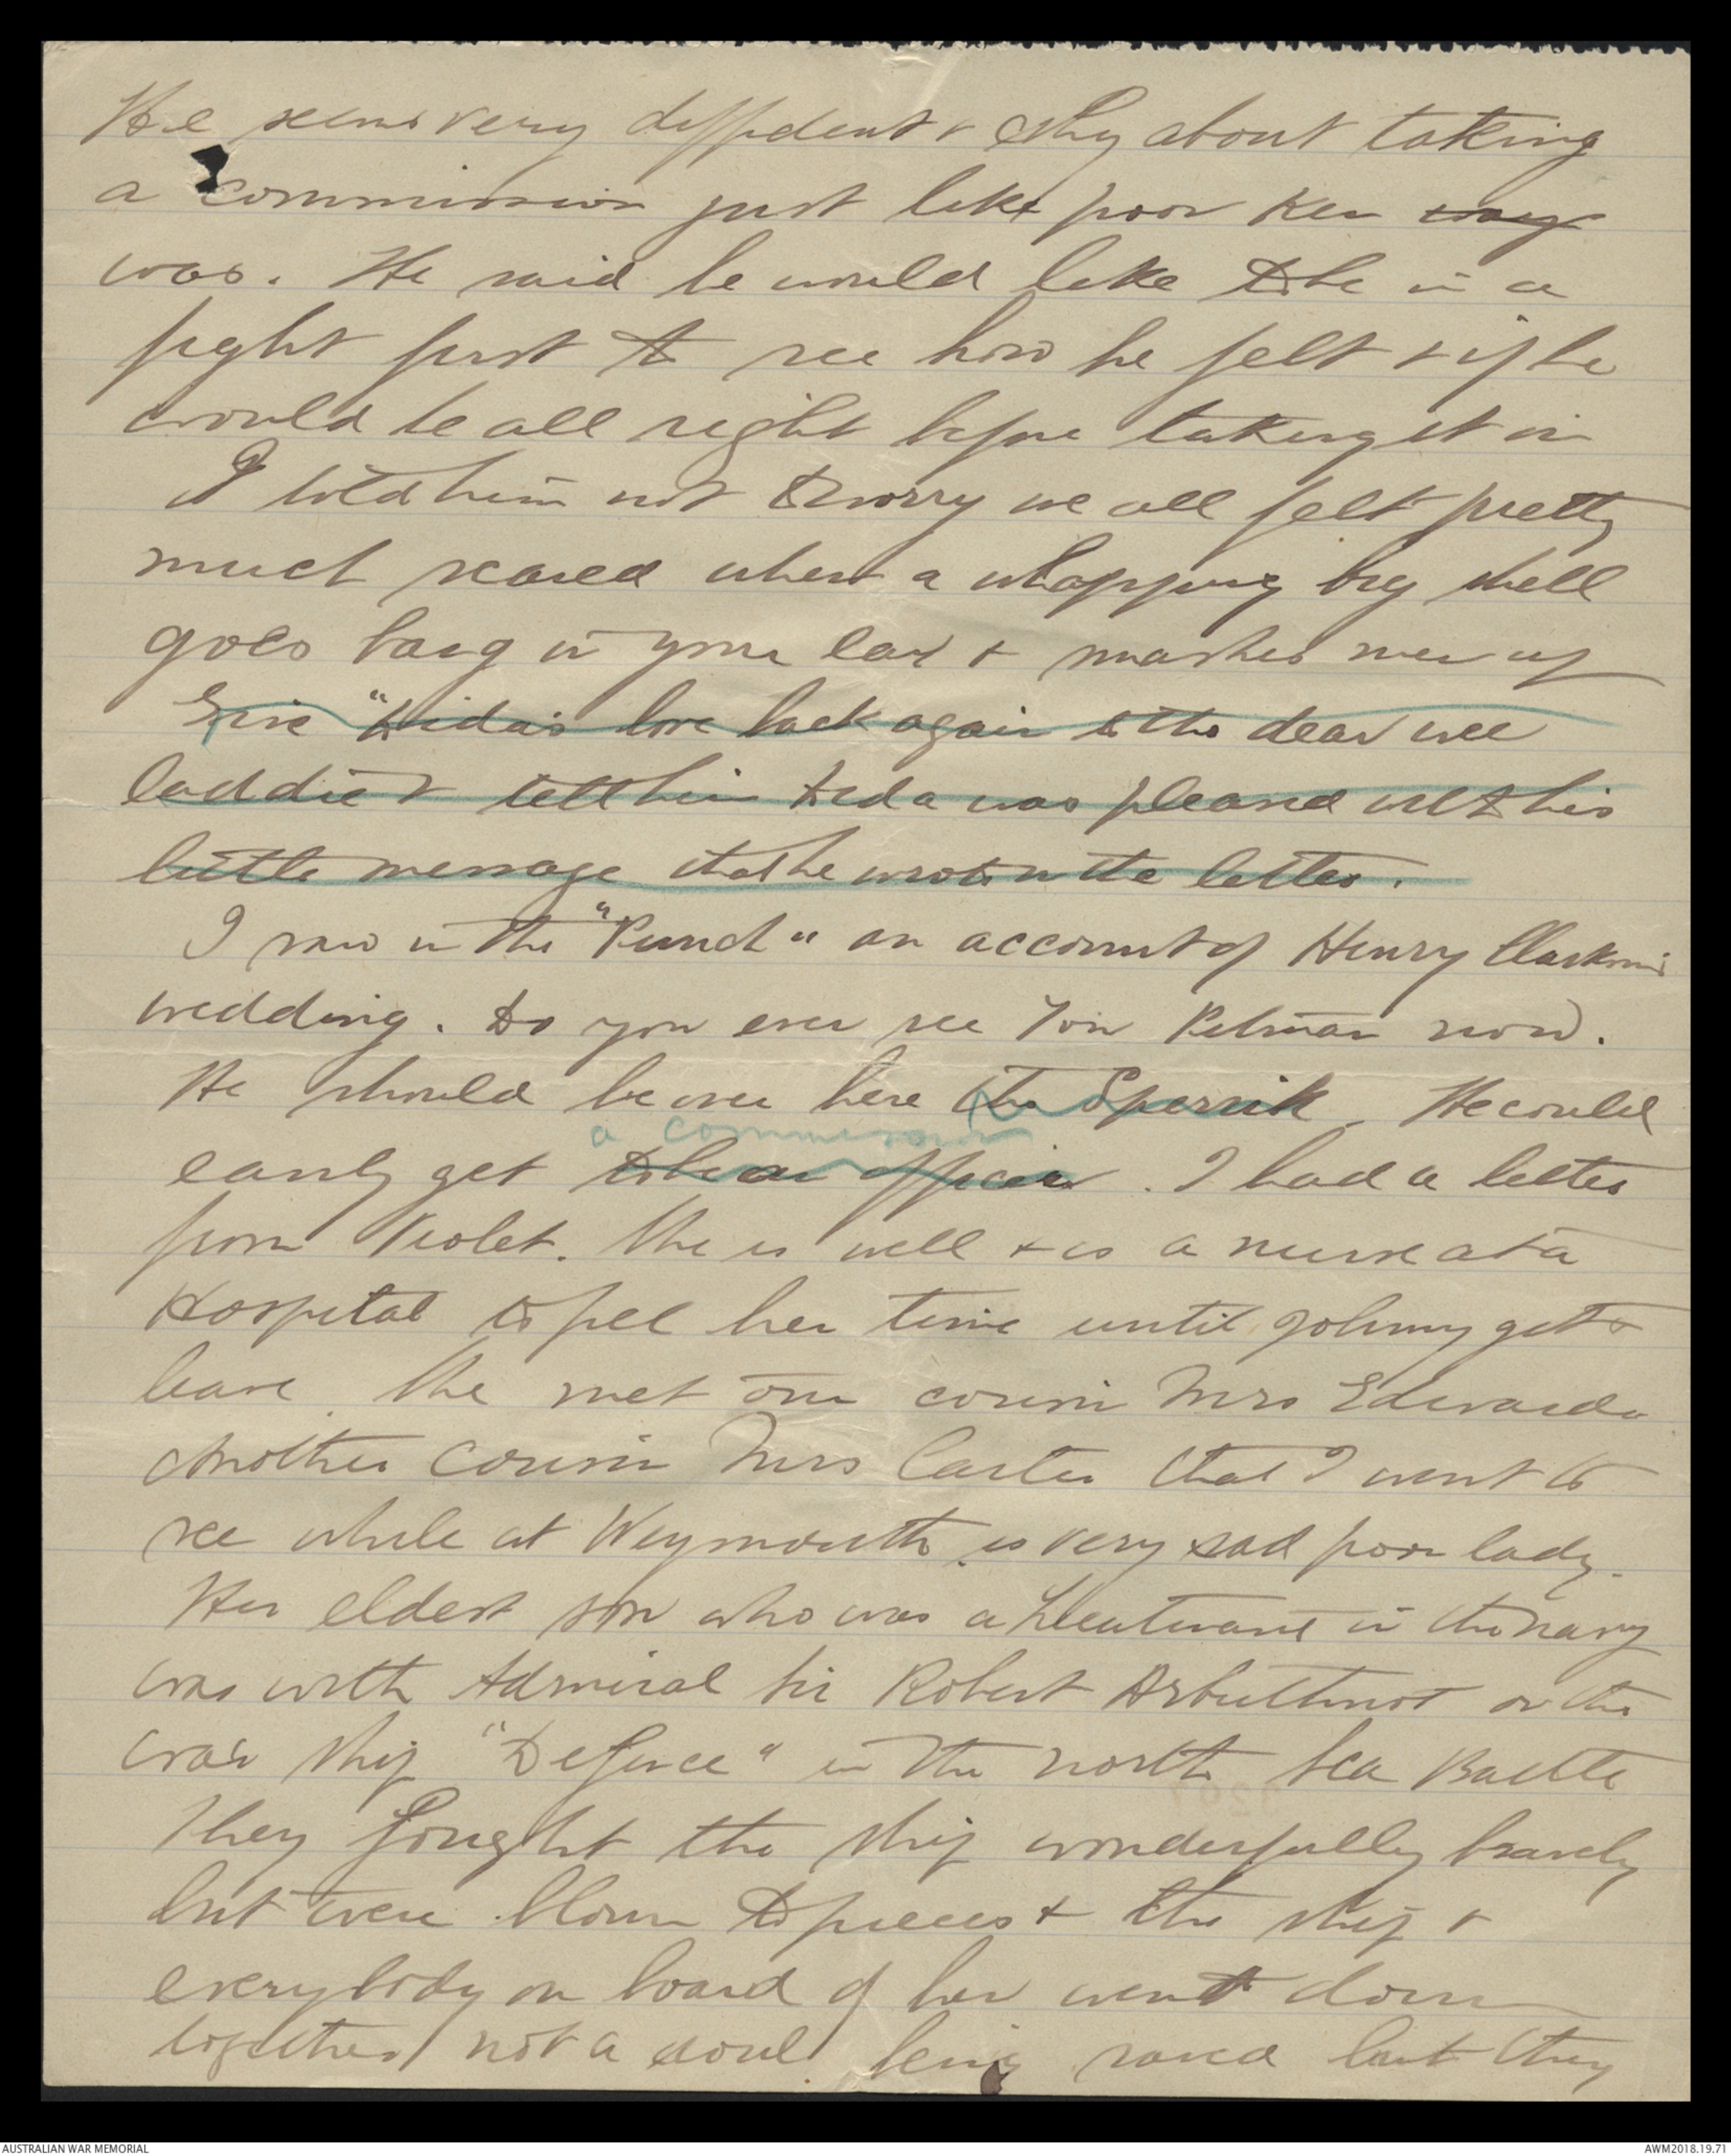 He seems very diffident & shy about taking
a commission just like poor Ken was. He said he would like to be in a
fight first to see how he felt & if he
would be all right before taking it on
I told him not to worry we all felt pretty
much scared when a whopping big shell
goes bang in your ear & smashes men up
Give "Dida's love back again to the dear wee
laddie & tell him Dida was pleased with his
little message that he wrote in the letter.
I saw in the "Punch" an account of Henry
wedding. Do you ever see now.
He should be over here the. He could
a commission
easily get to be an officer. I had a letter
from Violet. She is well & is a nurse at a
Hospital to fill her time until Johnny gets
leave. She met our cousin Mrs Edwards
Another cousin Mrs Carter that I went to
see while at Weymouth is very sad poor lady.
Her eldest son who was a Lieutenant in the navy
was with Admiral Sir Robert Arbuthnot on the
war ship "Defence" in the North Sea Battle
They fought the ship wonderfully bravely
but were blown to pieces & the ship &
everybody on board of her went down
together not a soul being saved but they
AUSTRALIAN WAR MEMORIAL
AWM2018.19.71